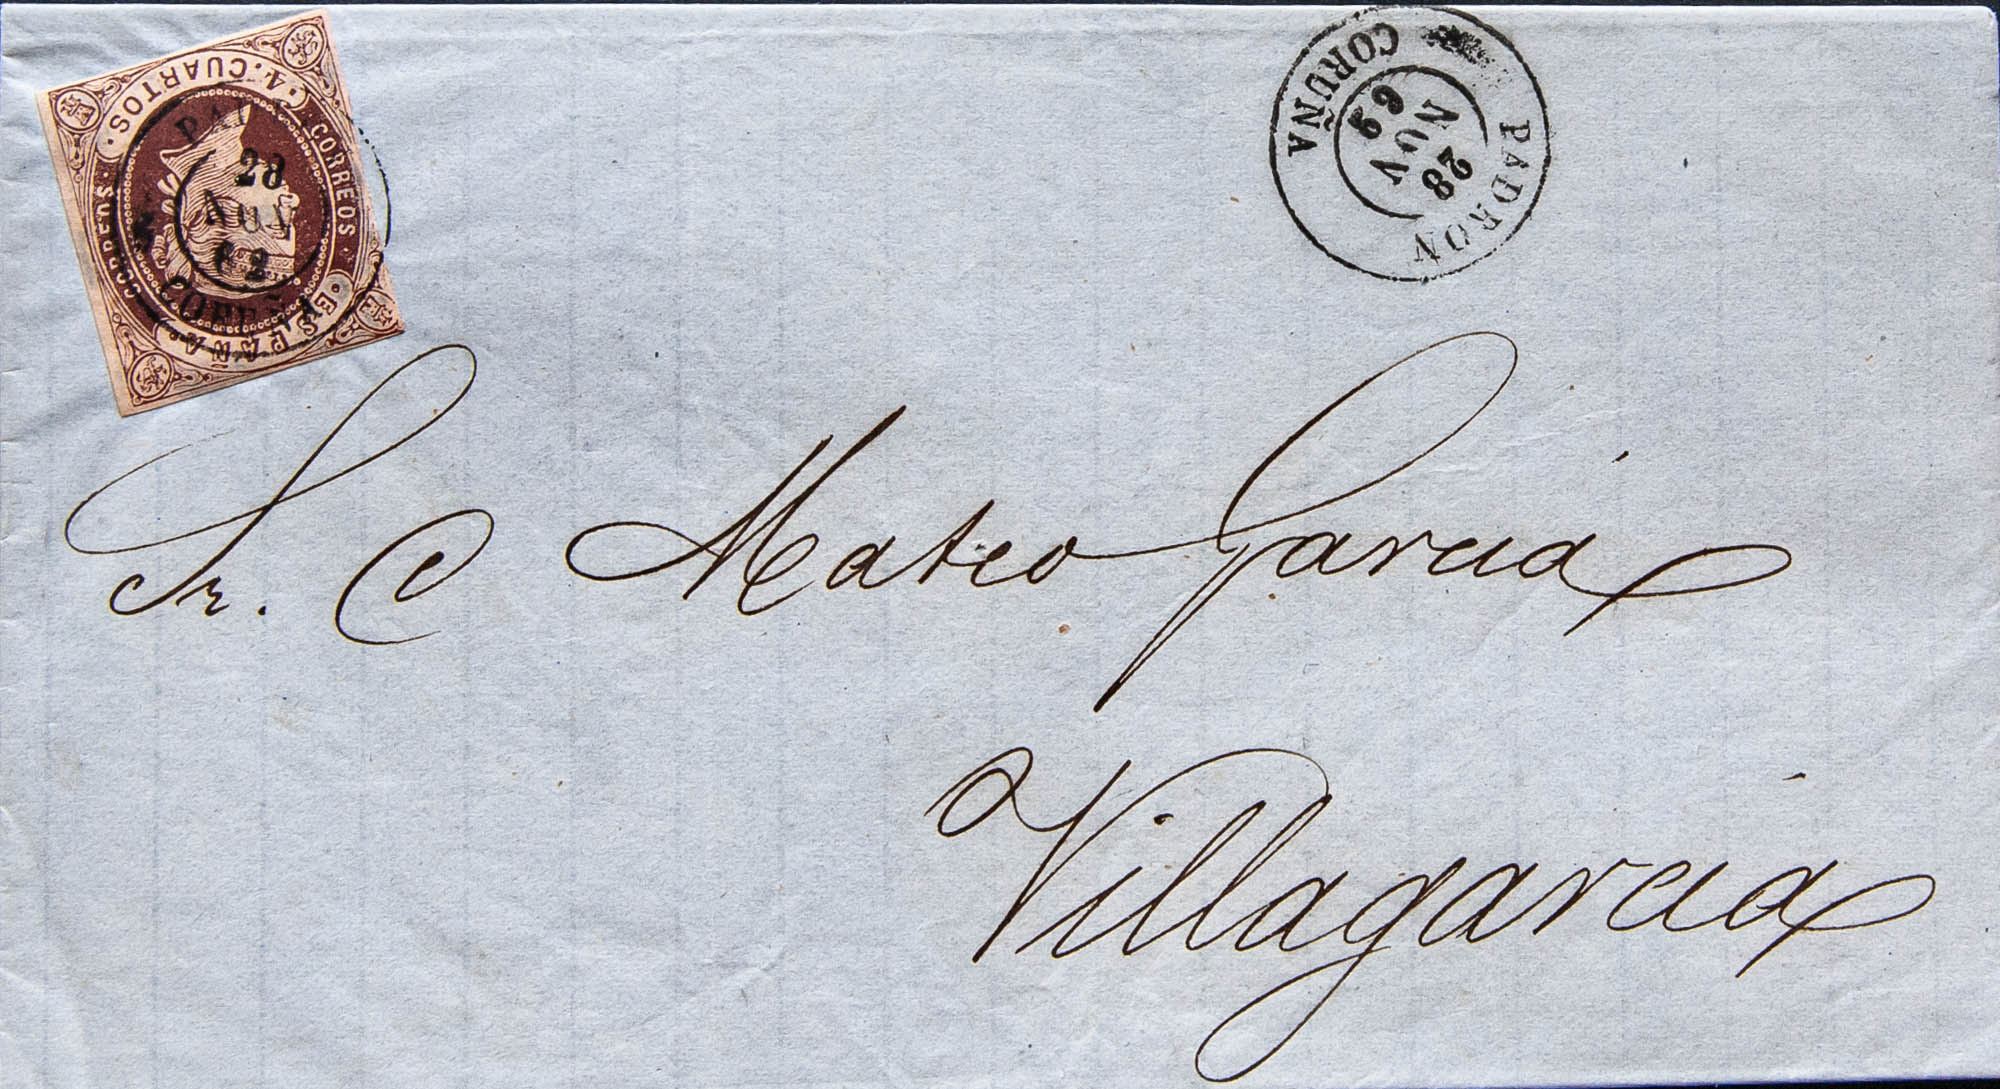 4. CUARTOS.
CORREOS.
CORREOS.
ESPAÑA.
28
NOV
62
CORUÑA
PADRON
28
NOV
CORUÑA
Sr. D Mateo Garcia
Villagarcia